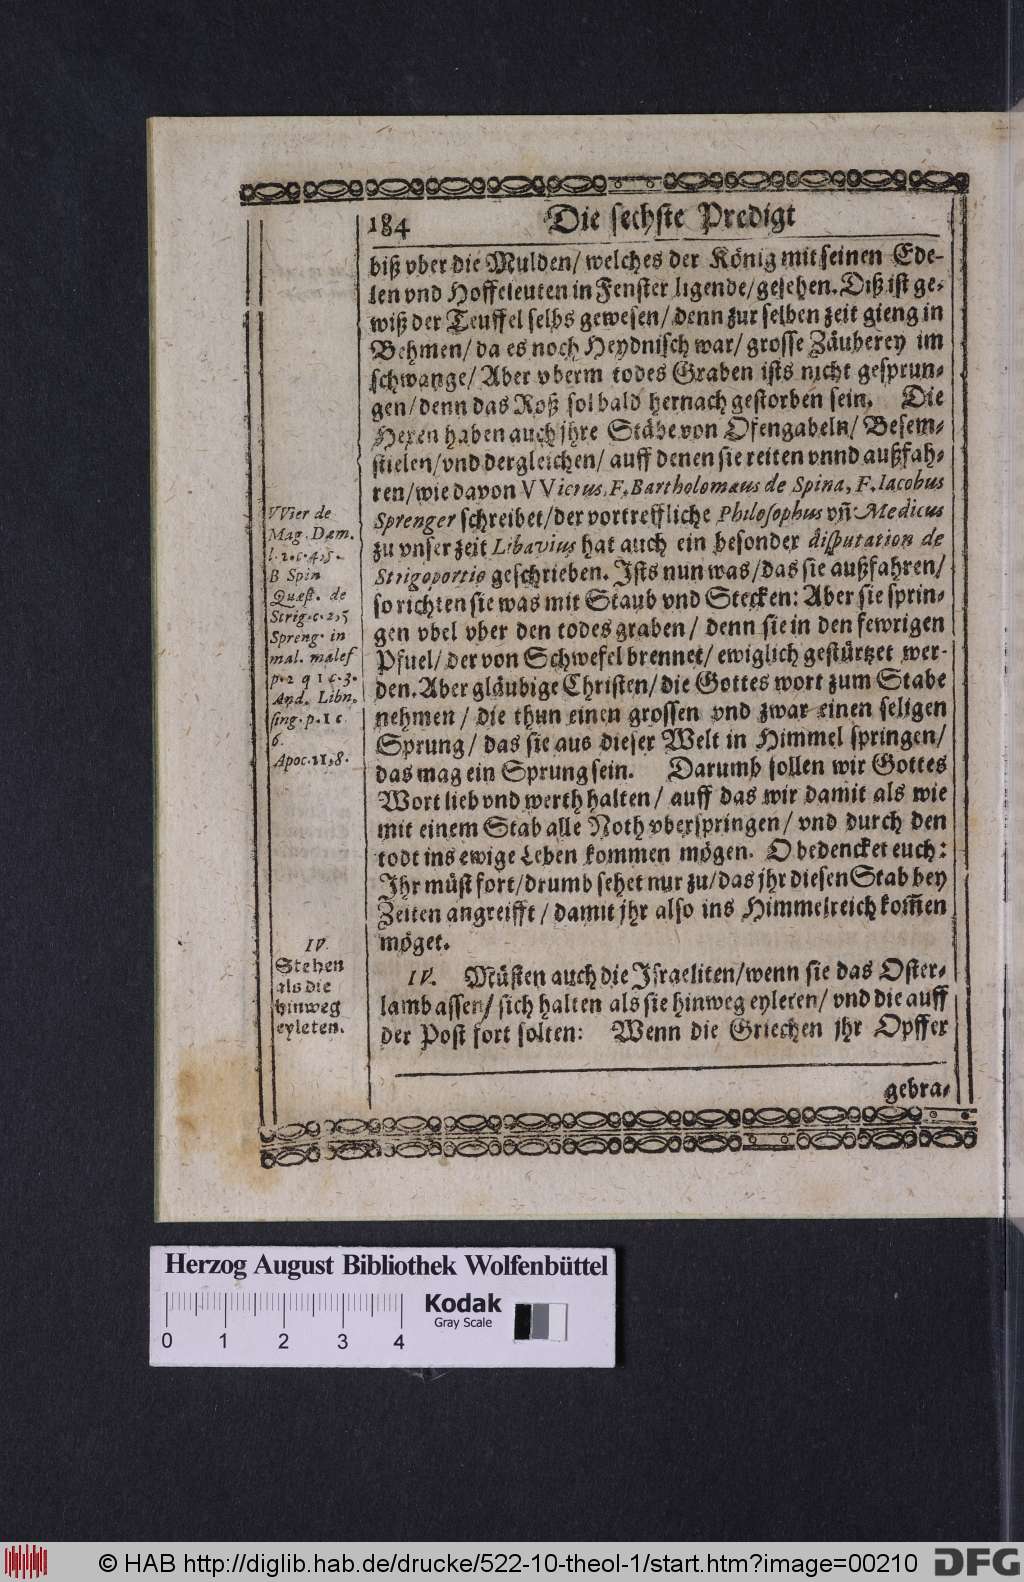 184
Die sechste Predigt
biß vber die Mulden/ welches der König mit seinen Ede-
len vnd Hoffeleuten in Fenster ligende/ gesehen. Diß ist ge-
wiß der Teuffel selbs gewesen/ denn zur selben zeit gieng in
Behmen/ da es noch Heydnisch war/ grosse Zäuberey im
schwange/ Aber vberm todes Graben ists nicht gesprun-
gen/ denn das Roß sol bald hernach gestorben sein. Die
Hexen haben auch jhre Stäbe von Ofengabeln/ Besem-
stielen/ vnd dergleichen/ auff denen sie reiten vnnd außfah-
ren/ wie davon VVierus, F. Bartholomæus de Spina, F. Iacobus
Sprenger schreibet/ der vortreffliche Philosophus vn̄ Medicus
zu vnser zeit Libavius hat auch ein besonder disputation de
Strigoportio geschrieben. Ists nun was/ das sie außfahren/
so richten sie was mit Staub vnd Stecken: Aber sie sprin-
gen vbel vber den todes graben/ denn sie in den fewrigen
Pfuel/ der von Schwefel brennet/ ewiglich gestürtzet wer-
den. Aber gläubige Christen/ die Gottes wort zum Stabe
nehmen/ die thun einen grossen vnd zwar einen seligen
Sprung/ das sie aus dieser Welt in Himmel springen/
das mag ein Sprung sein. Darumb sollen wir Gottes
Wort lieb vnd werth halten/ auff das wir damit als wie
mit einem Stab alle Noth vberspringen/ vnd durch den
todt ins ewige Leben kommen mögen. O bedencket euch:
Ihr müst fort/ drumb sehet nur zu/ das jhr diesen Stab bey
Zeiten angreifft/ damit jhr also ins Himmelreich kom̄en
möget.
IV. Müsten auch die Israeliten/ wenn sie das Oster-
lamb assen/ sich halten als sie hinweg eyleten/ vnd die auff
der Post fort solten: Wenn die Griechen jhr Opffer
gebra-
VVier de
Mag. Dæm.
l. 2. c. 4, 5.
B Spin
Quæst. de
Strig. c. 2, 5
Spreng. in
mal. malef
p. 2 q 1 c. 3.
And. Libn.
sing. p. 1 c
6.
Apoc. 21, 8.
IV.
Stehen
als die
hinweg
eyleten.
Herzog August Bibliothek Wolfenbüttel
Kodak
Gray Scale
0 1 2 3 4
© HAB http://diglib.hab.de/drucke/522-10-theol-1/start.htm?image=00210
DFG